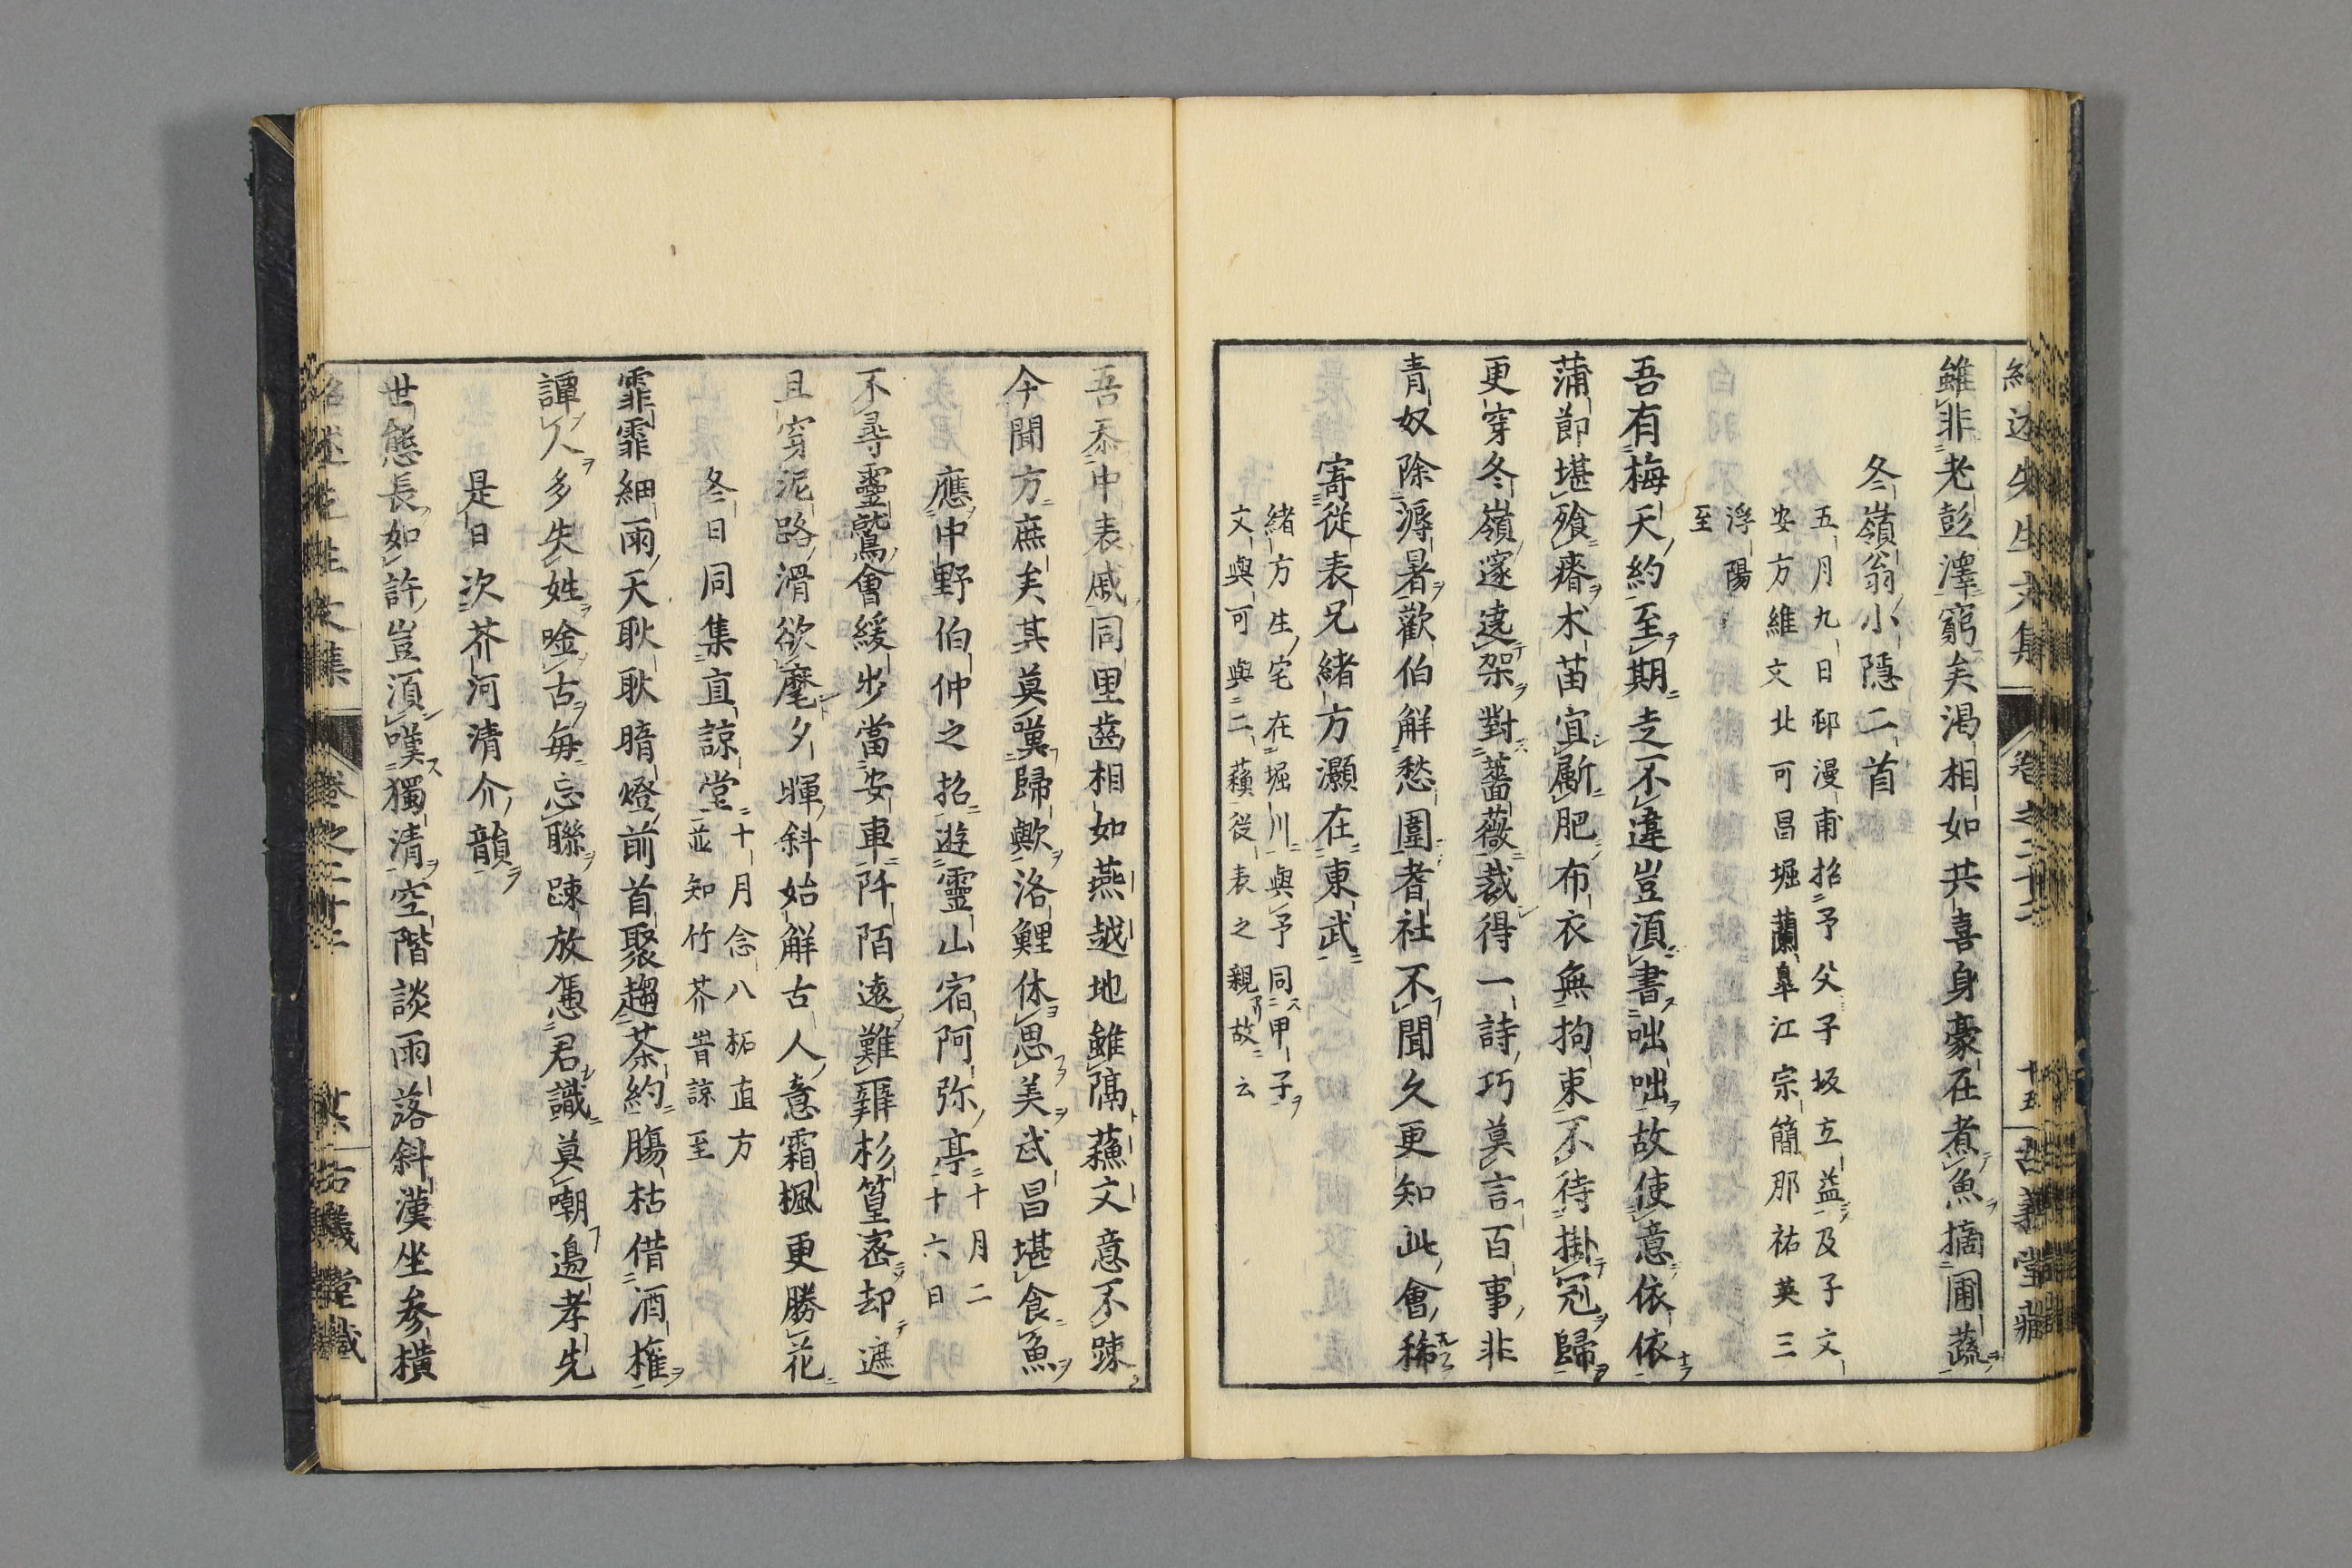 紹述先生文集 卷之二十二 十五 古義堂藏
雖非老彭澤窮矣渇相如共喜身豪在煮魚摘圃蔬
冬嶺翁小隱二首
五月九日邨漫甫招予父子坂立益及子文
安方維文北可昌堀蘭皐江宗簡那祐英三
浮陽
至
吾有梅天約至期走不違豈湏書咄咄故使意依依
蒲節堪飱瘠朮苗宜斸肥布衣無拘束不待掛冠歸
更穿冬嶺邃遶架對薔薇裁得一詩巧莫言百事非
青奴除溽暑歡伯解愁圍耆社不聞久更知此會稀
寄從表兄緒方灝在東武
緒方生宅在堀川與予同甲子
文與可與二蘓從表之親故云
吾忝中表戚同里齒相如燕越地雖隔蘓文意不踈
今聞方庶矣其莫嘆歸歟洛鯉休思美武昌堪食魚
應中野伯仲之招遊靈山宿阿弥亭
十月二
十六日
不尋靈鷲會緩步當安車阡陌遠難辨杉篁宻却遮
且穿泥路滑欲麾夕暉斜始解古人意霜楓更勝花
冬日同集直諒堂
十月念八柘直方
並知竹芥峕諒至
霏霏細雨天耿耿暗燈前首聚趨茶約膓枯借酒㩁
譚人多失姓唫古每忘聯踈放憑君識莫嘲邉孝先
是日次芥河清介韻
世態長如許豈湏嘆獨清空階談雨落斜漢坐参橫
紹述先生文集 卷之二十二 古義堂藏